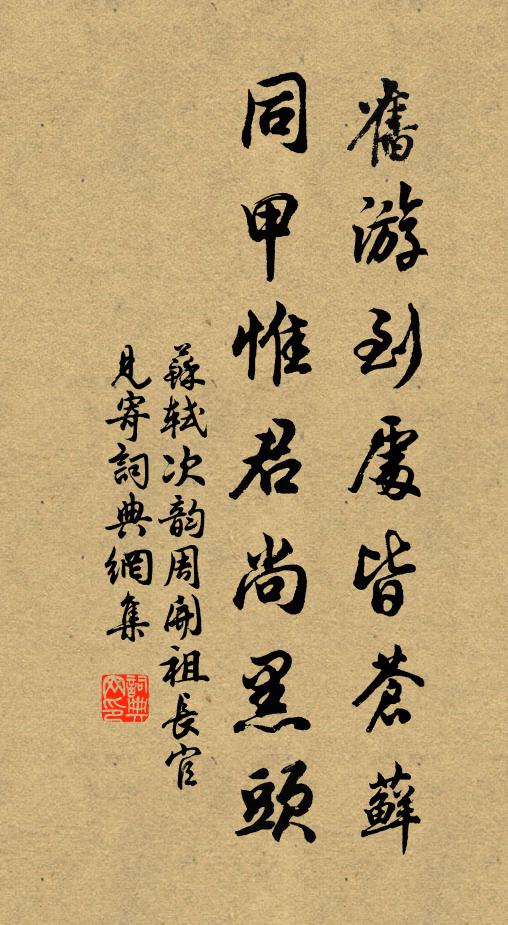 舊游到處皆蒼蘚
同甲惟君尚黑頭
蘇軾次韵周開祖長官
見寄詞典網集
詞典网印